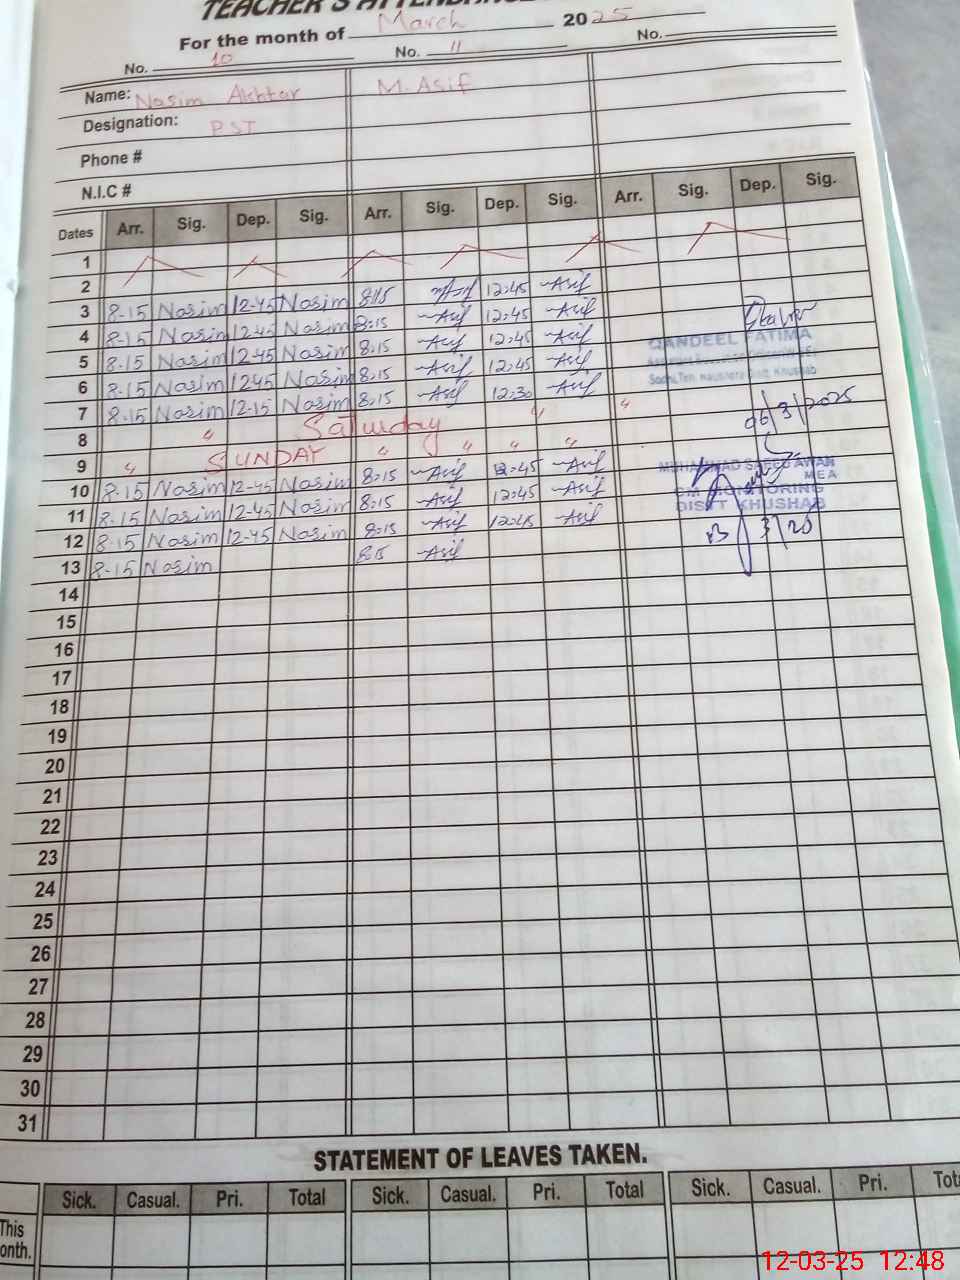 TEACHER'S ATTENDANCE
For the month of March 2025
No. 10 No. 11 No.
Name: Nasim Akhtar M. Asif
Designation: PST
Phone #
N.I.C #
Dates Arr. Sig. Dep. Sig. Arr. Sig. Dep. Sig. Arr. Sig. Dep. Sig.
1
2
3 8-15 Nasim 12-45 Nasim 8:15 M.Asif 12:45 Asif
4 8-15 Nasim 12-45 Nasim 8:15 Asif 12:45 Asif
5 8-15 Nasim 12-45 Nasim 8:15 Asif 12:45 Asif
6 8-15 Nasim 12-45 Nasim 8:15 Asif 12:45 Asif
7 8-15 Nasim 12-15 Nasim 8:15 Asif 12:30 Asif
8 " Saturday " "
9 " SUNDAY " " " "
10 8-15 Nasim 12-45 Nasim 8:15 Asif 12:45 Asif
11 8-15 Nasim 12-45 Nasim 8:15 Asif 12:45 Asif
12 8-15 Nasim 12-45 Nasim 8:15 Asif 12:45 Asif
13 8-15 Nasim 8:15 Asif
QANDEEL FATIMA
Khushab
06/3/2025
MUHAMMAD SAEED AWAN
MEA
CM MONITORING
DISTT KHUSHAB
14
15
16
17
18
19
20
21
22
23
24
25
26
27
28
29
30
31
STATEMENT OF LEAVES TAKEN.
Sick. Casual. Pri. Total Sick. Casual. Pri. Total Sick. Casual. Pri. Tot
This
onth.
12-03-25 12:48